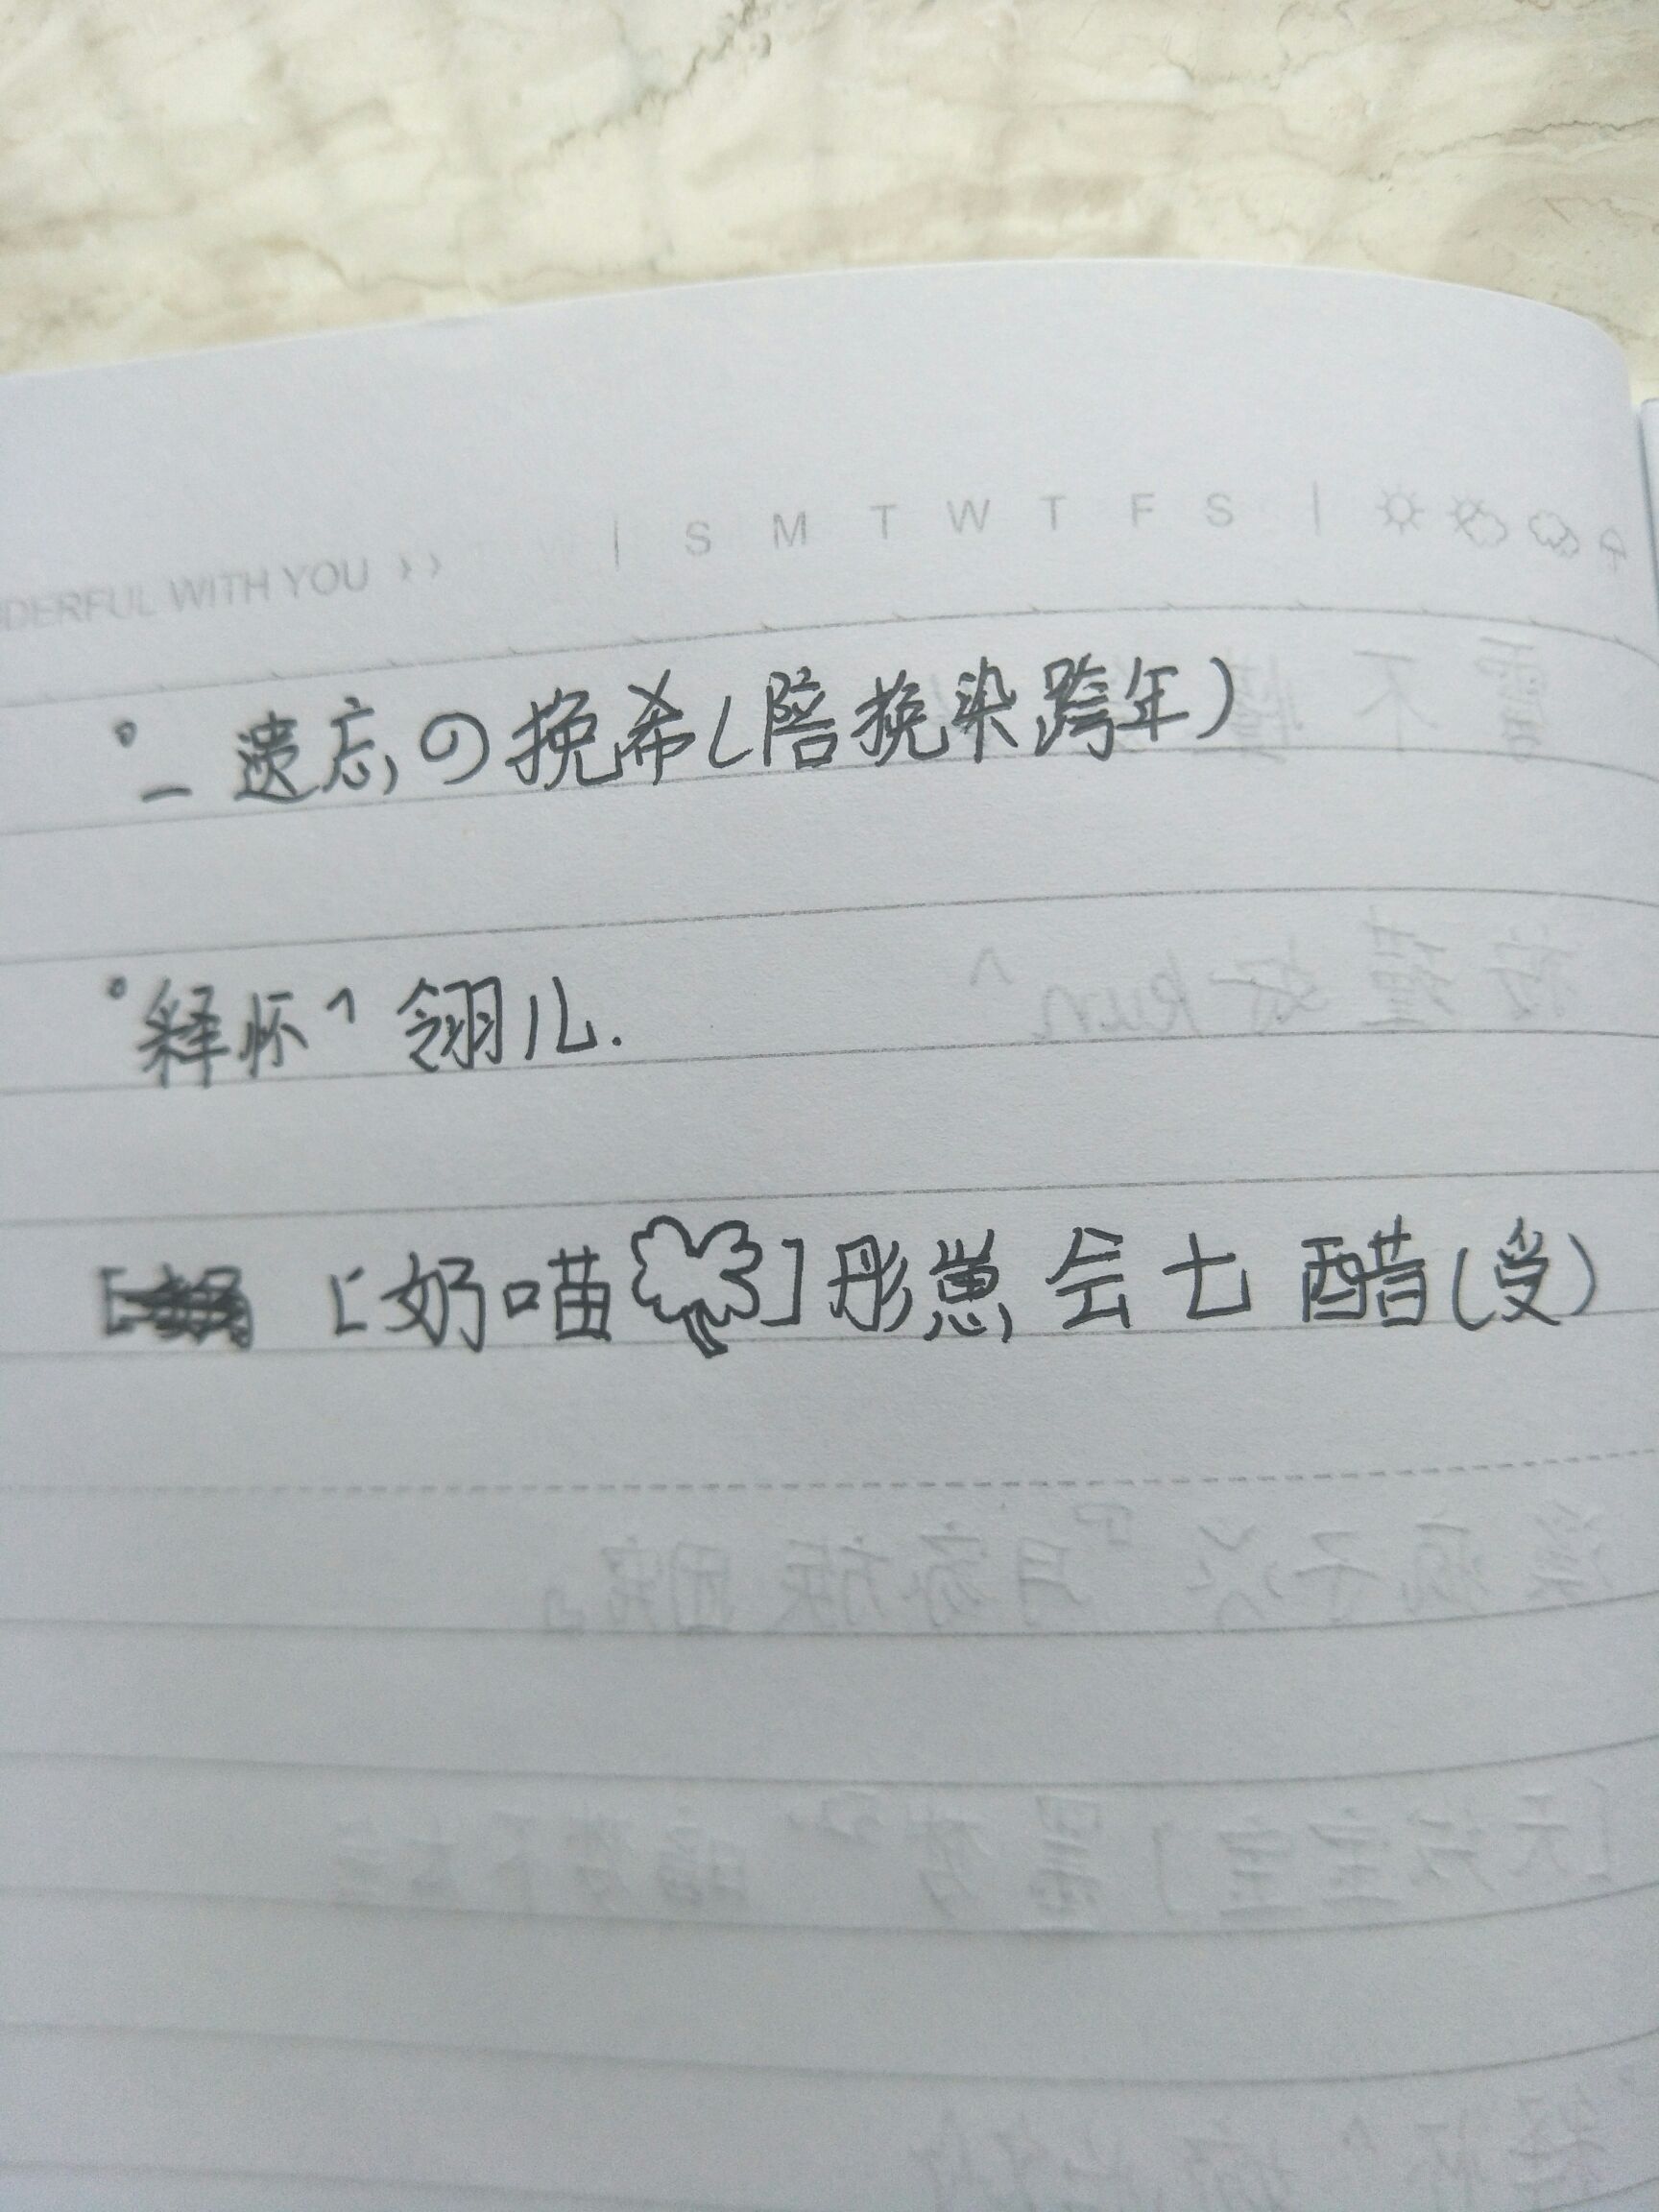 DERFUL WITH YOU ›› | S M T W T F S |
°_遗忘の挽希(陪挽染跨年)
°释怀^翎儿.
[奶喵]彤崽会七醋(受)